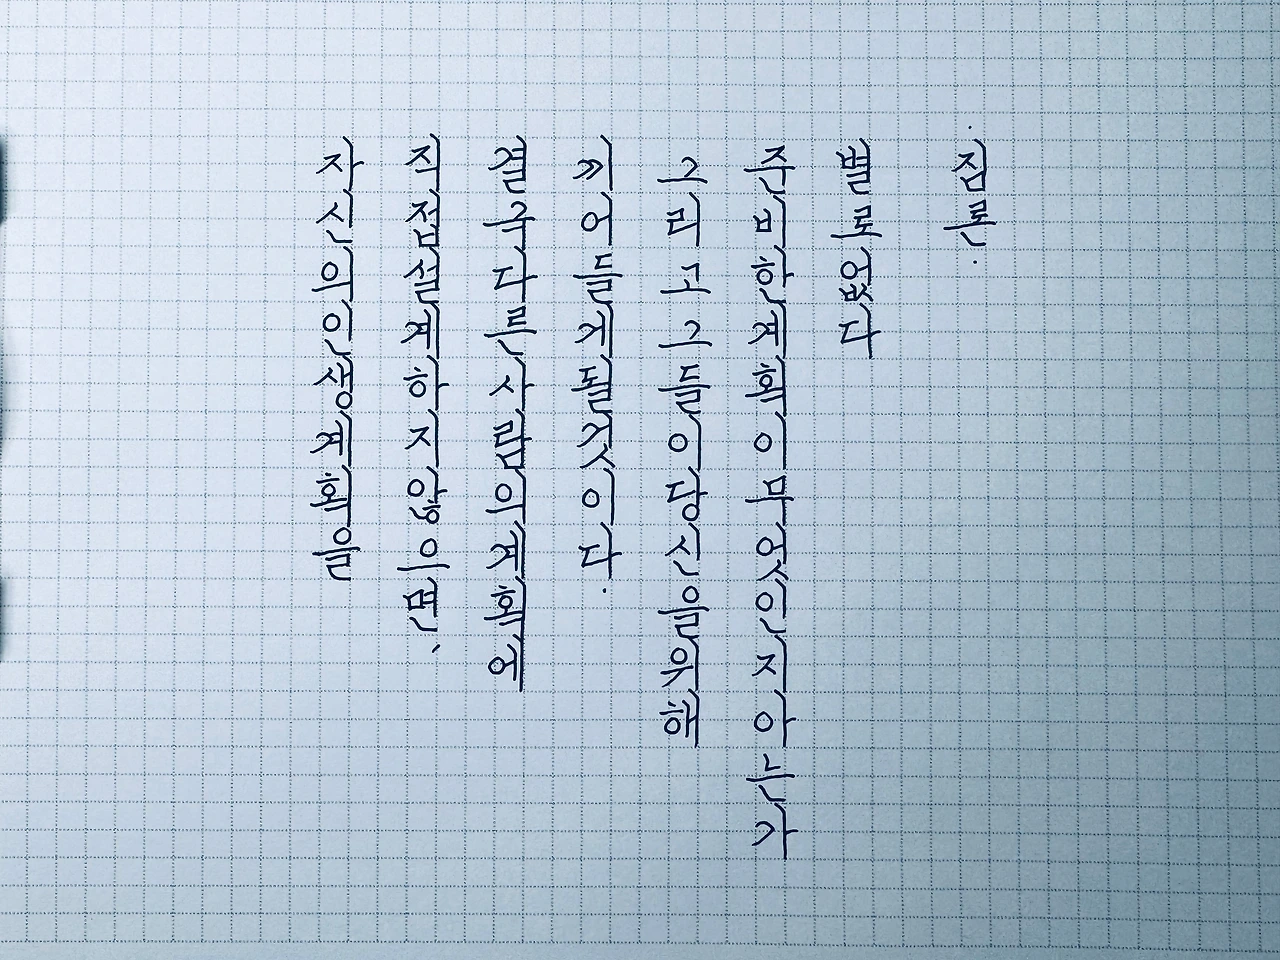 자신의인생계획을
직접설계하지않으면,
결국다른사람의계획에
끼어들게될것이다.
그리고그들이당신을위해
준비한계획이무엇인지아는가
별로없다
·짐론·